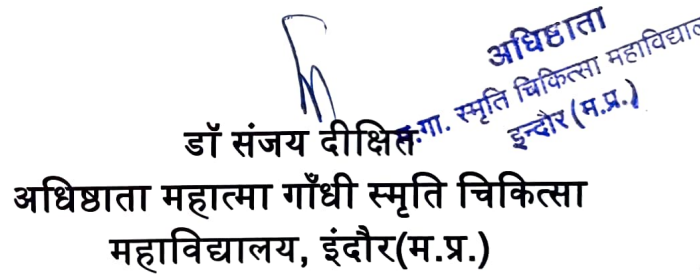 अधिष्ठाता
म.गा. स्मृति चिकित्सा
इन्दौर (म.प्र.)
डॉ संजय दीक्षित
अधिष्ठाता महात्मा गाँधी स्मृति चिकित्सा
महाविद्यालय, इंदौर(म.प्र.)